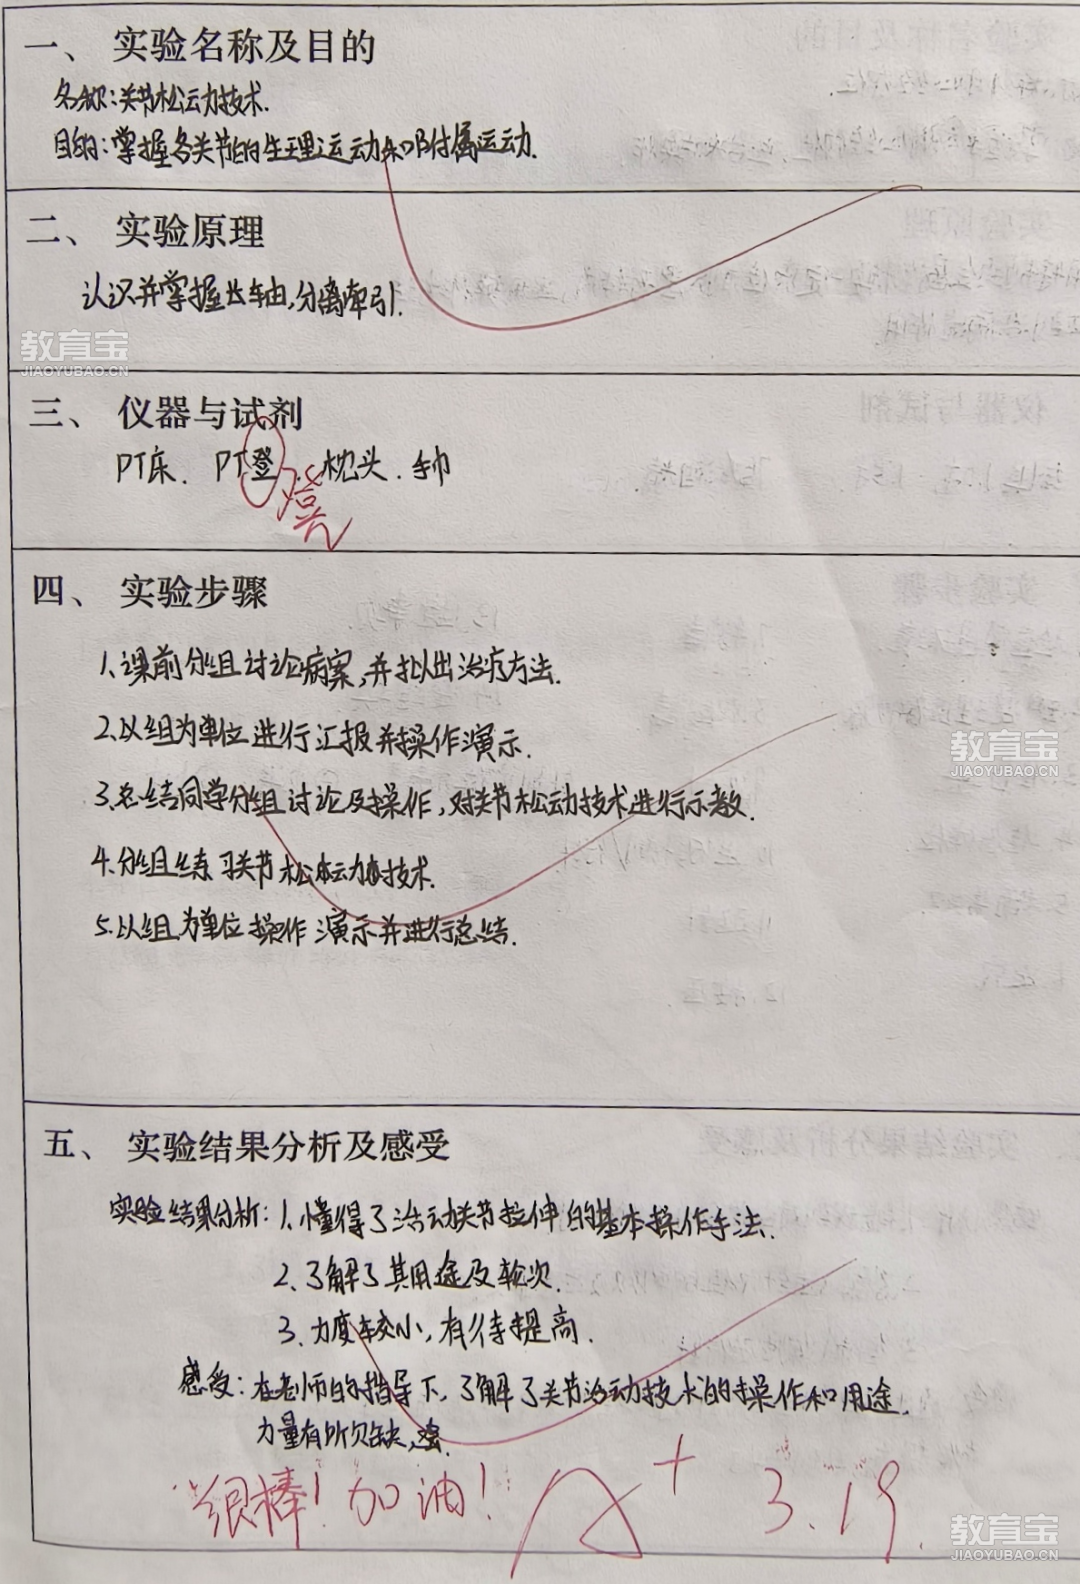 一、 实验名称及目的
名称:关节松动技术.
目的:掌握各关节的生理运动和附属运动.
二、 实验原理
认识并掌握长轴,分离牵引.
教育宝
JIAOYUBAO.CN
三、 仪器与试剂
PT床. PT登 . 枕头. 手巾
凳
四、 实验步骤
1.课前分组讨论病案,并拟出治疗方法.
2.以组为单位进行汇报并操作演示.
教育宝
JIAOYUBAO.CN
3.总结同学分组讨论及操作,对关节松动技术进行示教.
4.分组练习关节松动技术.
5.以组为单位操作演示并进行总结.
五、 实验结果分析及感受
实验结果分析:1.懂得了活动关节拉伸的基本操作手法.
2.了解了其用途及轮次.
3.力度较小,有待提高.
感受:在老师的指导下,了解了关节活动技术的操作和用途.
力量有所欠缺,
很棒!加油! A+ 3.19.
教育宝
JIAOYUBAO.CN